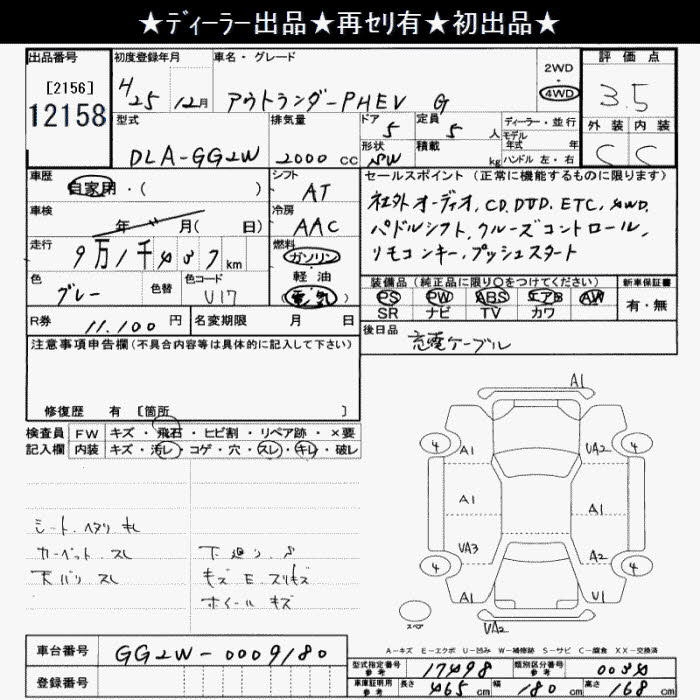 ★ディーラー出品★再セリ有★初出品★
出品番号
[2156]
12158
初度登録年月
H 25 12月
車名・グレード
アウトランダーPHEV G
2WD
4WD
評価点
3.5
外装 内装
C C
型式
DLA-GG2W
排気量
2000 cc
ドア 5
定員 5 人
形状 SW
積載 kg
ディーラー・並行
モデル年式 年
ハンドル 左・右
車歴
自家用・( )
シフト
AT
セールスポイント(正常に機能するものに限ります)
社外オーディオ, CD, DVD, ETC, 4WD,
パドルシフト, クルーズコントロール,
リモコンキー, プッシュスタート
車検
年 月( 日)
冷房
AAC
走行
9万1千437km
燃料
ガソリン
軽油
(電気)
色
グレー
色替
色コード
U17
装備品(純正品に限り○をつけてください)
PS PW ABS エアB AW
SR ナビ TV カワ
新車保証書
有・無
R券 11,100円
名変期限 月 日
後日品
充電ケーブル
注意事項申告欄(不具合内容等は具体的に記入して下さい)
修復歴 有 [箇所 ]
検査員
記入欄
FW キズ・飛石・ヒビ割・リペア跡・×要
内装 キズ・汚レ・コゲ・穴・スレ・キレ・破レ
シート ヘタリ キレ
カーペット スレ
天バリ スレ
下廻り S
キズ E スリキズ
ホイール キズ
A1
4 4
A1 UA2
A1 A1
VA3 A2
4 4
A1 U1
スペア
VA2
A-キズ E-エクボ U-凹み W-補修跡 S-サビ C-腐食 XX-交換済
車台番号
GG2W-0009180
登録番号
型式指定番号 参考 17498
類別区分番号 参考 0034
車庫証明用 参考 長さ 465cm 幅 180cm 高さ 168cm